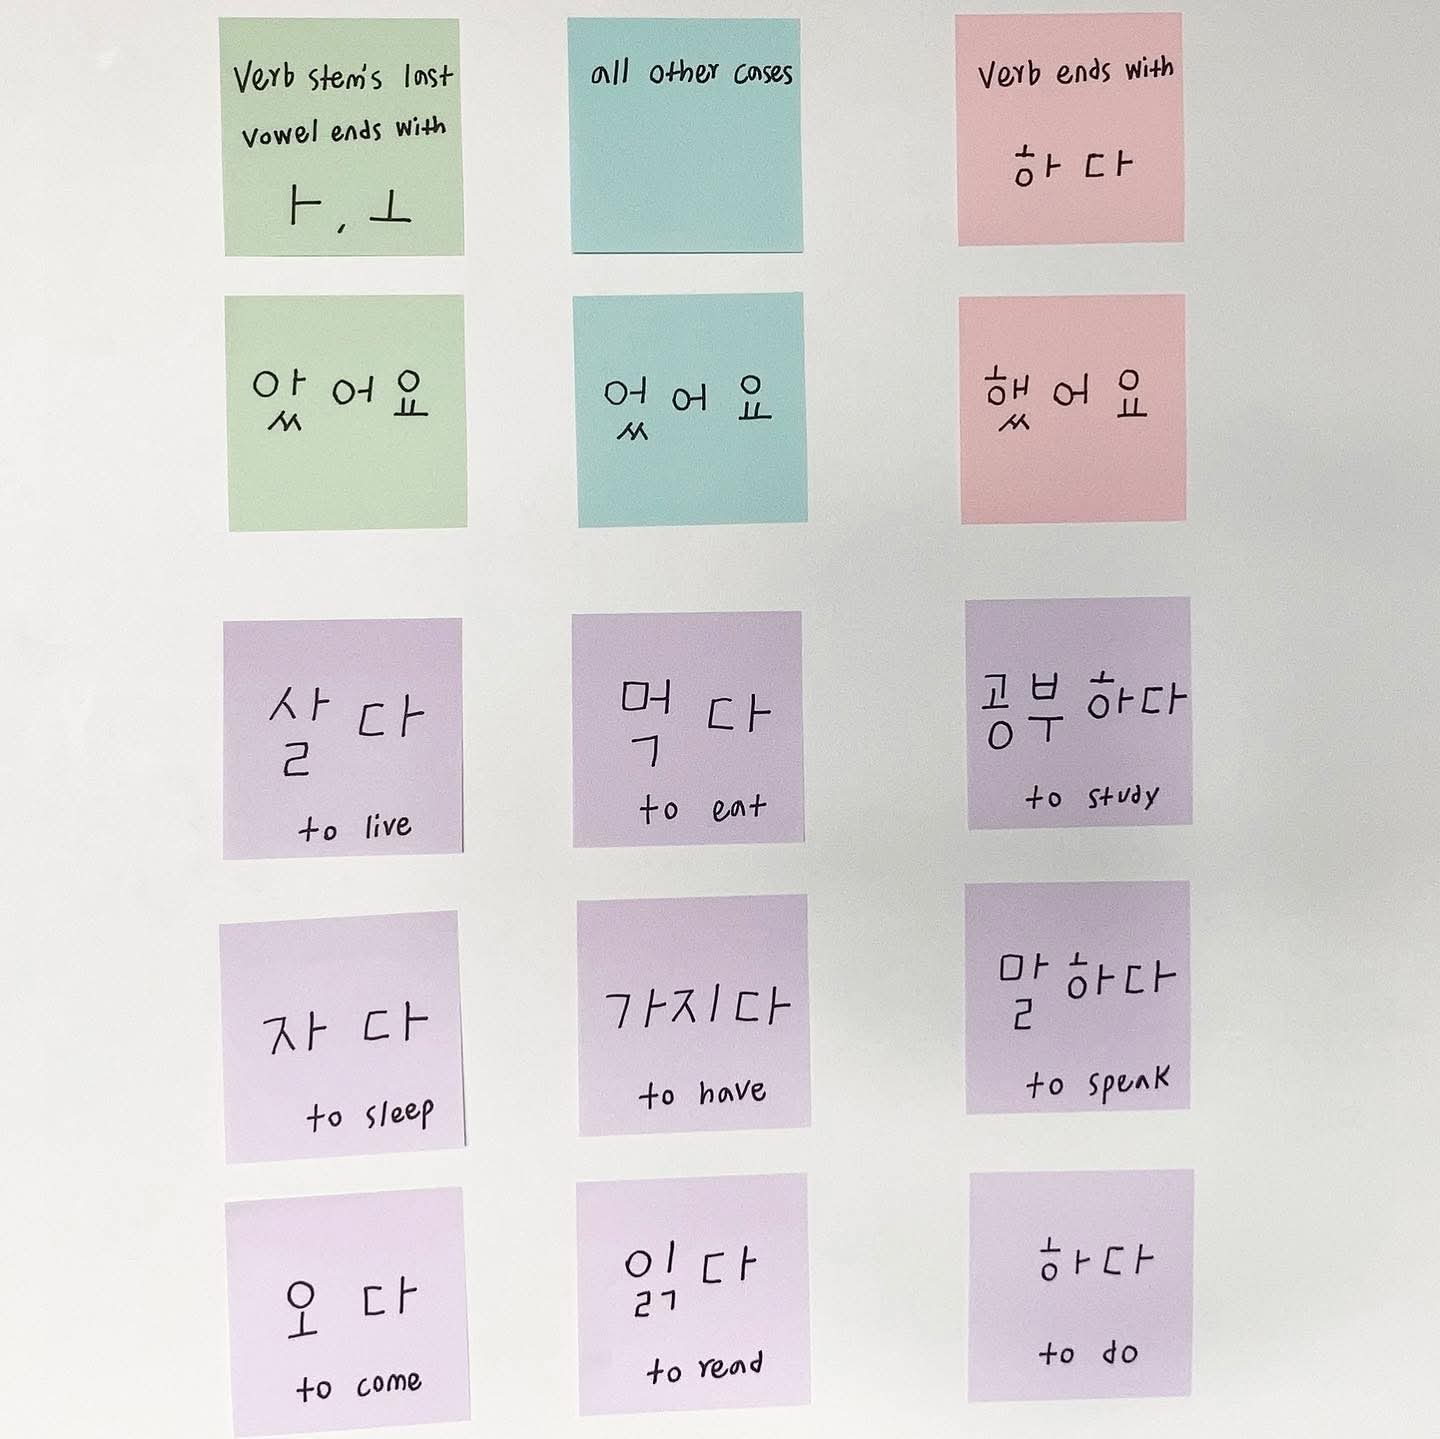 Verb stem's last
vowel ends with
ㅏ, ㅗ
all other cases
Verb ends with
하다
았어요
었어요
했어요
살다
to live
먹다
to eat
공부하다
to study
자다
to sleep
가지다
to have
말하다
to speak
오다
to come
읽다
to read
하다
to do